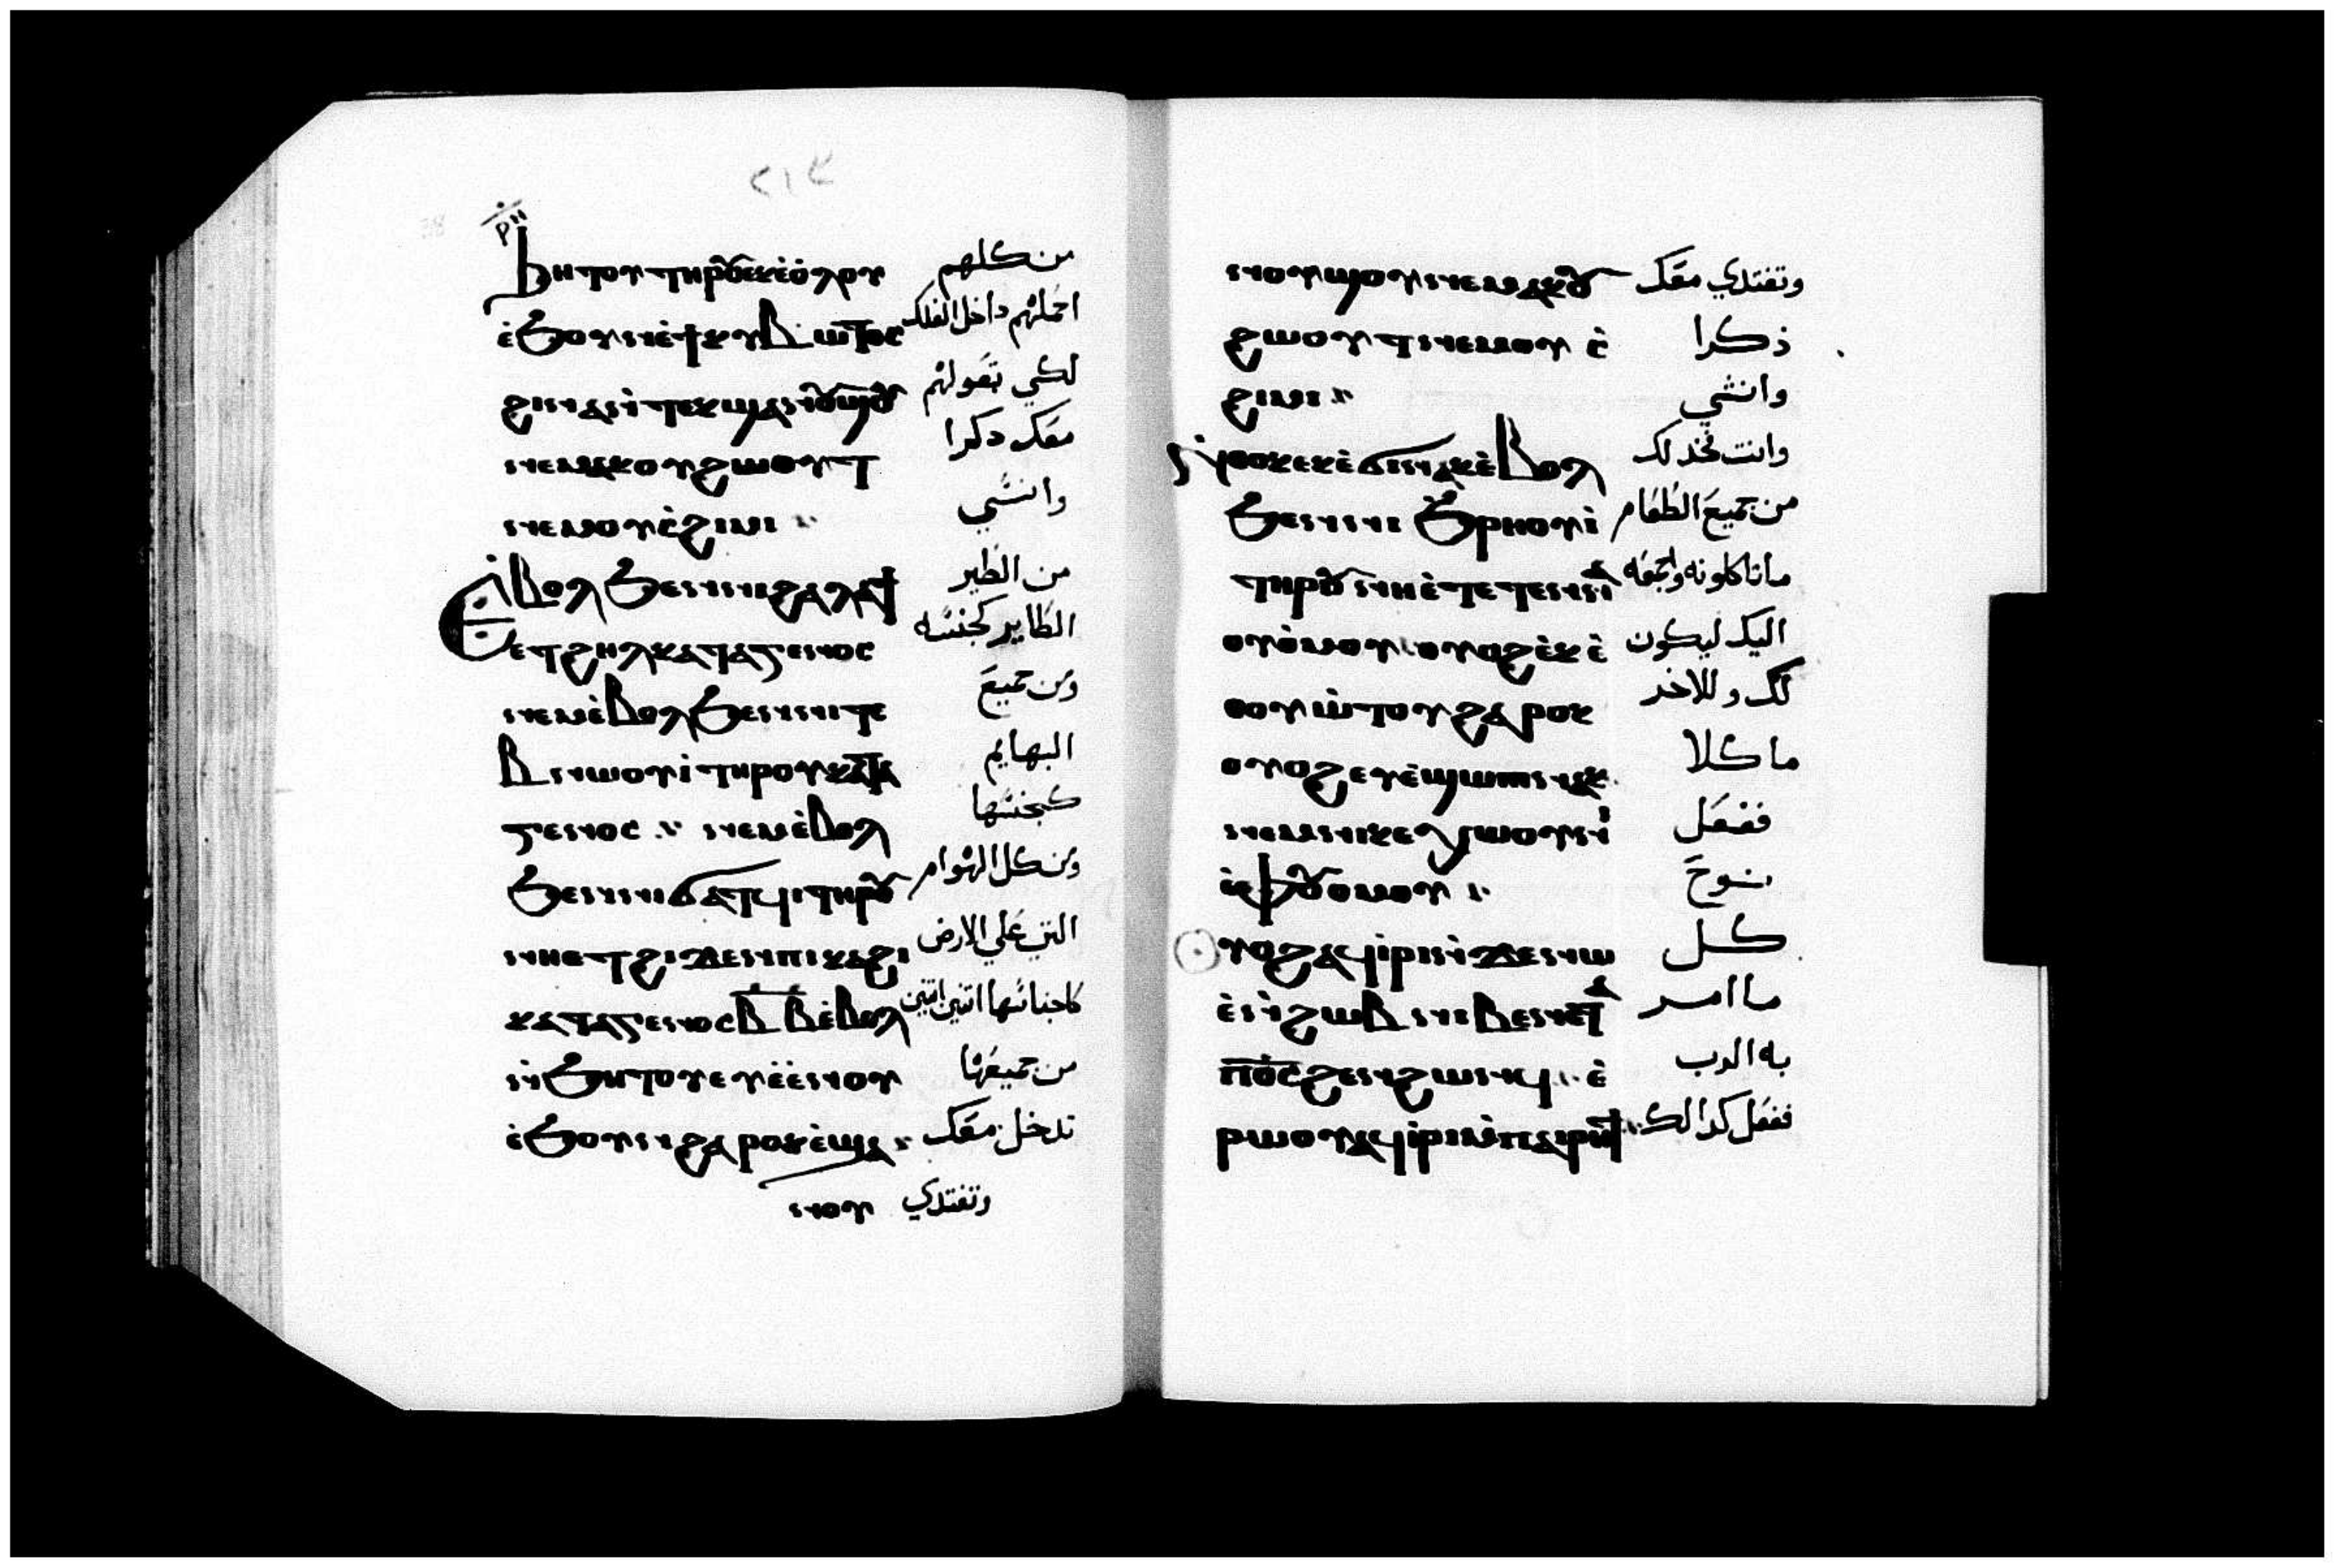 ٢١٤
ⲣⲏ
ϧⲏⲧⲟⲩ ⲧⲏⲣⲟⲩ ⲉⲕⲉⲟ̀ⲗⲟⲩ من كلهم
ⲉ̀ϧⲟⲩⲛ ⲉ̀ϯⲕⲩⲃⲱⲧⲟⲥ احملهم داخل الفلك
ϩⲓⲛⲁ ⲛ̀ⲧⲉⲕϣⲁⲛⲟⲩϣⲟⲩ لكي تعولهم
ⲛⲉⲙⲁⲕ ⲟⲩϩⲱⲟⲩⲧ معك دكرا
ⲛⲉⲙ ⲟⲩⲥ̀ϩⲓⲙⲓ وانثي
Ⲉ̀ⲃⲟⲗ ϧⲉⲛ ⲛⲓϩⲁⲗⲁϯ من الطير
ⲉⲧϩⲏⲗ ⲕⲁⲧⲁ ⲅⲉⲛⲟⲥ الطاير كجنسه
ⲛⲉⲙ ⲉ̀ⲃⲟⲗ ϧⲉⲛ ⲛⲓⲧⲉ ومن جميع
ⲃⲛⲱⲟⲩⲓ̀ ⲧⲏⲣⲟⲩ ⲕⲁⲧⲁ البهايم
ⲅⲉⲛⲟⲥ ⲛⲉⲙ ⲉ̀ⲃⲟⲗ كجنسها
ϧⲉⲛ ⲛⲓϭⲁⲧϥⲓ ⲧⲏⲣⲟⲩ ومن كل الهوام
ⲛⲏⲉⲧϩⲓϫⲉⲛ ⲡⲓⲕⲁϩⲓ التي علي الارض
ⲕⲁⲧⲁ ⲅⲉⲛⲟⲥ ⲃ̅ ⲃ̅ ⲉ̀ⲃⲟⲗ كاجناسها اتنين اتنين
ⲛ̀ϧⲏⲧⲟⲩ ⲉⲩⲉ̀ⲉ̀ⲛⲟⲩ من جميعها
ⲉ̀ϧⲟⲩⲛ ϩⲁⲣⲟⲕ ⲉ̀ϣⲁ تدخل معك
ⲛⲟⲩ وتغتدي
ⲛⲟⲩϣⲟⲩ ⲛⲉⲙⲁⲕ ⲟⲩ وتغتدي معك
ϩⲱⲟⲩⲧ ⲛⲉⲙ ⲟⲩⲥ̀ ذكرا
ϩⲓⲙⲓ وانثي
ⲛ̀ⲑⲟⲕ ⲉⲕⲉ̀ϭⲓ ⲛⲁⲕ ⲉ̀ⲃⲟⲗ وانت فخد لك
ϧⲉⲛ ⲛⲓϧⲣⲏⲟⲩⲓ̀ من جميع الطعام
ⲧⲏⲣⲟⲩ ⲛⲏ ⲉ̀ⲧⲉⲧⲉⲛⲛⲁ ما تاكلونه واجمعه
ⲟⲩⲟ̀ⲙⲟⲩ ⲟⲩⲟϩ ⲉ̀ⲕⲉ̀ اليك ليكون
ⲑⲟⲩⲱ̀ⲧⲟⲩ ϩⲁⲣⲟⲕ لك وللاخر
ⲟⲩⲟϩ ⲉⲩⲉ̀ϣⲱⲡⲓ ⲛⲁⲕ ماكلا
ⲛⲉⲙ ⲛⲓⲕⲉⲭⲱⲟⲩⲛⲓ̀ ففعل
ⲉ̀ⲫⲟⲩⲟⲙⲟⲩ نوح
Ⲟⲩⲟϩ ⲁϥⲓ̀ⲣⲓ ⲛ̀ϫⲉ ⲛⲱ كل
ⲉ̀ ⲛ̀ϩⲱⲃ ⲛⲓⲃⲉⲛ ⲉ̀ⲧⲁ ما امر
ⲡϭ̅ⲥ̅ ϩⲉⲛϩⲱⲛϥ ⲉ̀ به الرب
ⲣⲱⲟⲩ ⲁϥⲓ̀ⲣⲓ ⲙ̀ⲡⲁⲓⲣⲏϯ ففعل كدالك